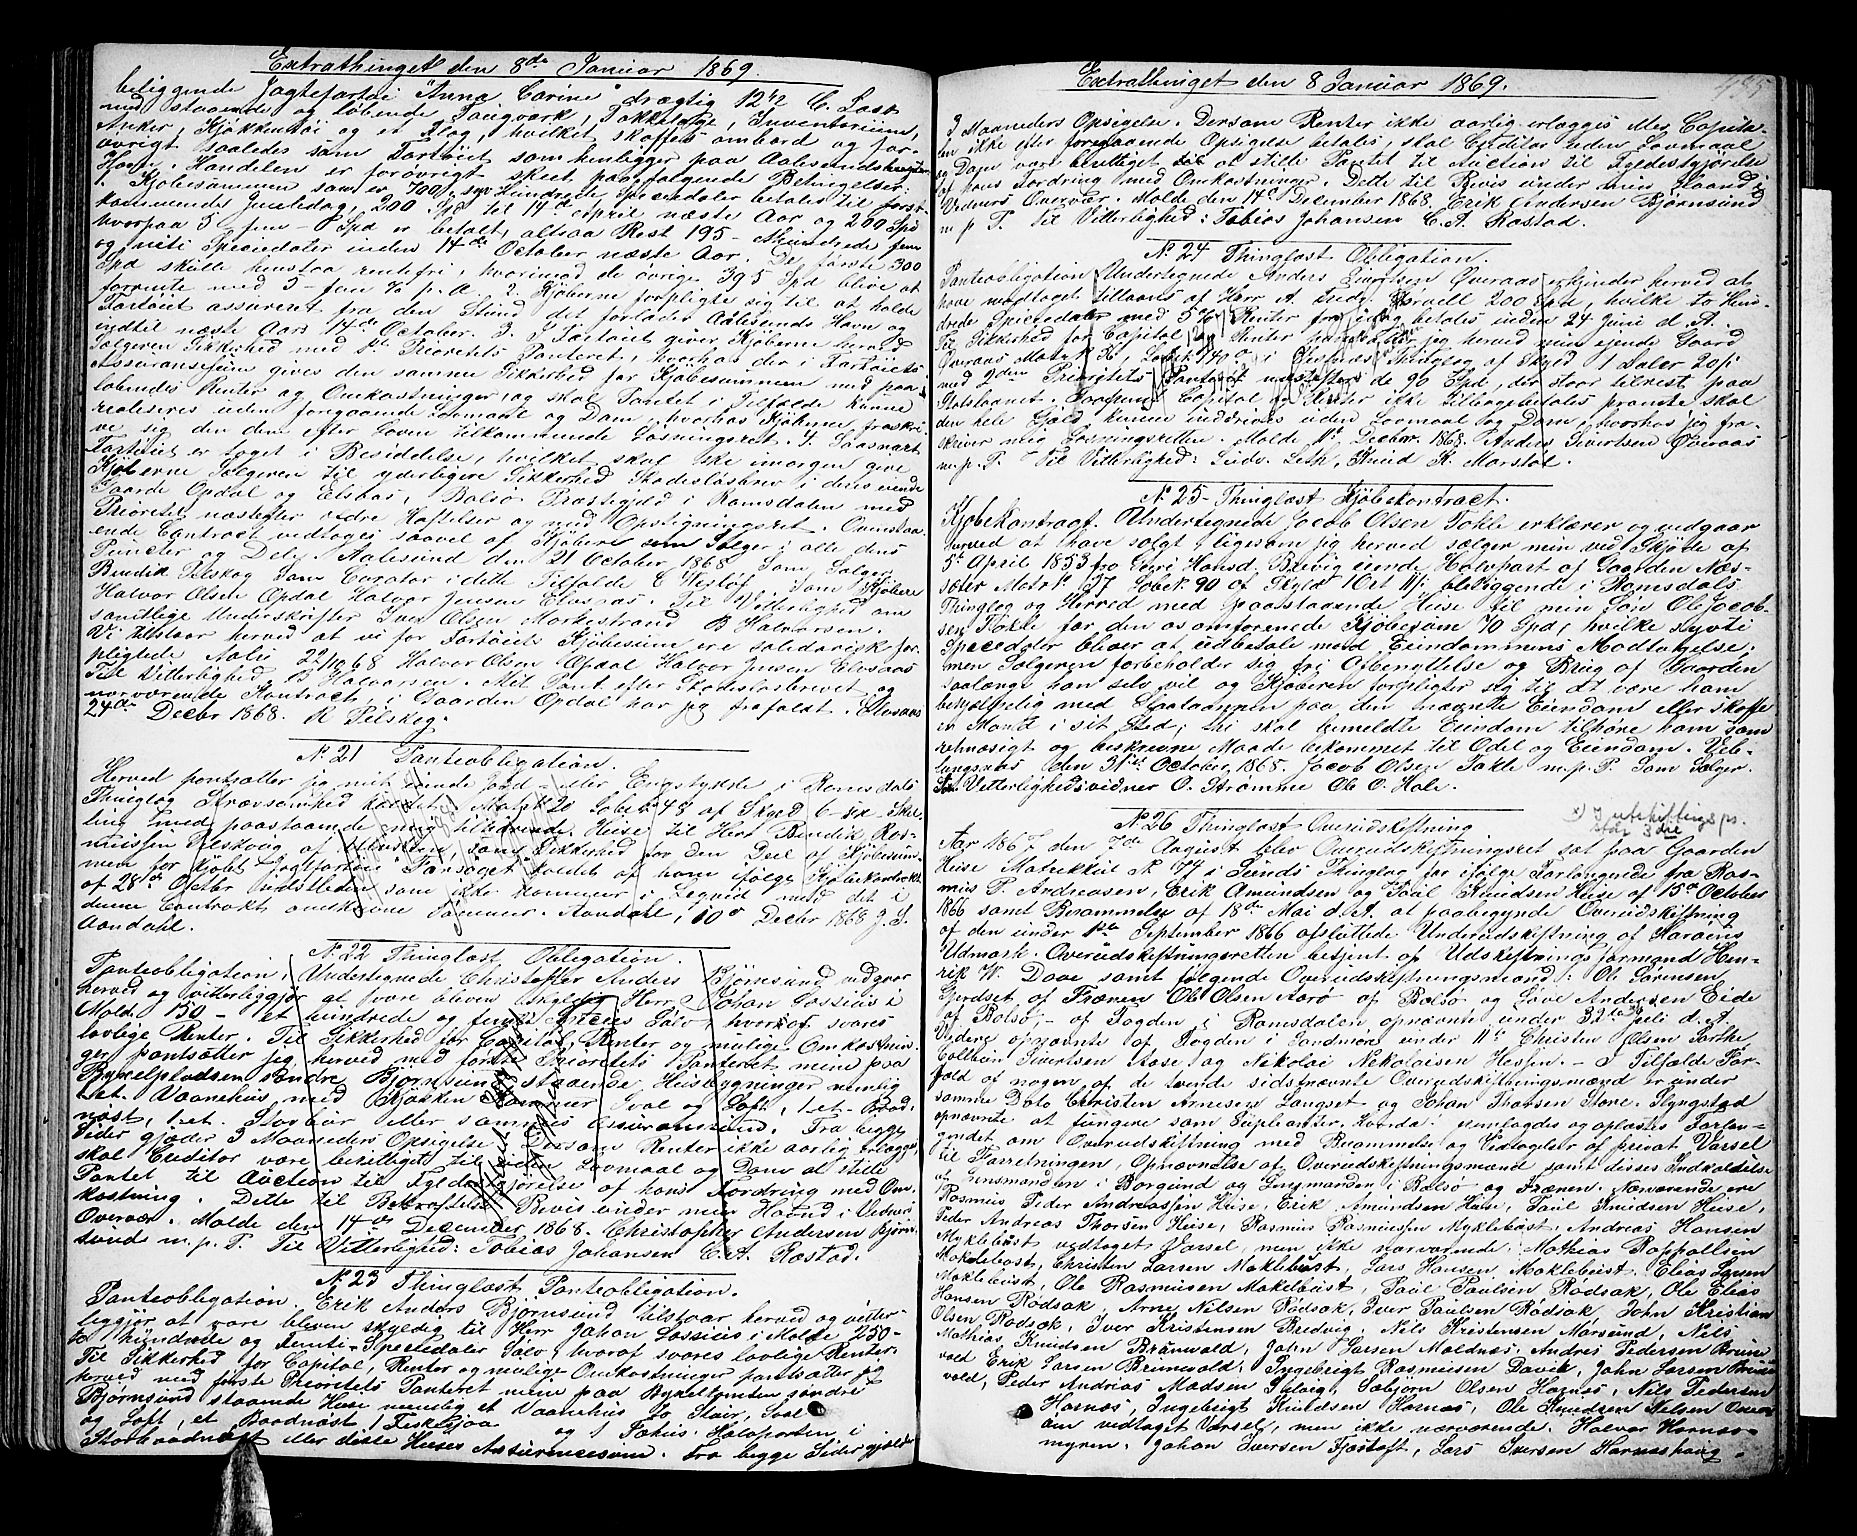 Extrathinget den 8de Januar 1869.
beliggende Jagtefartøi "Anna Carine" drægtig 12 1/2 C. Last
med staaende og løbende Tougværk, Takkelage, Inventarium,
Anker, Kjøkkentøi og et Flag, hvilket skaffes ombord og for-
øvrigt saaledes som Fartøiet som henligger paa Aalesunds
Havn. Handelen er forøvrigt skeet paa følgende Betingelser:
1. Kjøbesummen som er 700 syv Hundrede Speciedaler betales til først-
kommende Juuledag, 200 Spd til 14de April næste Aar og 200 Spd
hvorpaa 5 fem Spd er betalt, altsaa Rest 195 - Et hundrede fem
og niti Speciedaler inden 14de October næste Aar. De første 300
Spd skulle henstaa rentefri, hvorimod de øvrige 395 Spd blive at
forrente med 5 - fem % p. A. 2. Kjøberne forpligte sig til at holde
Fartøiet assureret fra den Stund det forlader Aalesunds Havn og
indtil næste Aars 14de October. 3. I Fartøiet giver Kjøberne herved
Sælgeren Sikkerhed med 1st Prioritets Panteret, hvorhos der i Fartøiets
Assurancesum gives den samme Sikkerhed for Kjøbesummen med paa-
løbende Renter og Omkostninger og skal Pantet i Tilfælde kunne
realiseres uden foregaaende Lovmaal og Dom, hvorhos Kjøberne fraskri-
ve sig den dem efter Loven tilkommende Løsningsret. 4. Saasnart
Fartøiet er taget i Besiddelse, hvilket skal ske imorgen give
Kjøberne Sælgeren til yderligere Sikkerhed Skadesløsbrev i deres eiende
Gaarde Opdal og Elvsaas, Bolsø Præstegjeld i Romsdalen med
Prioritet næstefter ældre Hæftelser og med Opstigningsret. Ovenstaa-
ende Contract vedtages saavel af Kjøbere som Sælger i alle dens
Puncter og Dele. Aalesund den 21 October 1868 Som Sælger
Bendik Pilskog Som Curator i dette Tilfælde C Westøl. Som Kjøbere
Halvor Olsen Opdal Halvor Jensen Elvsaas. Til Vitterlighed om
samtlige Underskrifter Iver Olsen Morkestrand B Halvorsen.
Vi tilstaar herved at vi for Fartøiets Kjøbesum ere solidarisk for-
pligtede Aale 22/10 68 Halvor Olsen Opdal Halvor Jensen Elvsaas
Til Vitterlighed B Halvorsen. Mit Pant efter Skadesløsbrevet og
nærværende Kontract i Gaarden Opdal har jeg frafaldt. Elvsaas
24de Decbr 1868. R Pilskog.
N. 21 Panteobligation.
Herved pantsætter jeg mit eiende Jord- eller Engstykke i Romsdals
Thinglag Strævsomhed kaldet Matr N. 20 Løbe N. 48 af Skyld 6 - sex - Skil-
ling med paastaaende mig tilhørende Huse til Herr Bendik Ras-
mussen Pilskog af Hundeidvik, som Sikkerhed for den Deel af Kjøbesum-
men for Kjøbt Jagtfartøi "Forsøget" solgt af ham ifølge Kjøbekontrakt
af 28de Octbr sidstleden som ikke kommer i Liqvid med det i
denne Contrakt omskrevne Summer. Aandahl, 10de Decbr 1868 J. S.
Aandahl.
N. 22 Thinglæst Obligation.
Panteobligation. Undertegnede Christoffer Anders Bjørnsund vedgaar
herved og vitterliggjør at være bleven skyldig Herr Johan Lossius i
Molde 150 - et hundrede og femti Species Sølv, hvoraf svares
lovlige Renter. Til Sikkerhed for Capital, Renter og mulige Omkostnin-
ger pantsætter jeg herved med første Prioritets Panteret mine paa
Bygselpladsen søndre Bjørnsund staaende Huusbygninger nemlig
1et Vaanehus med Kjøkken Kammer Sval og Loft, 1 et Baad-
nøst, 1 et Stovbur eller sammes Assuransesum. Fra begge
Sider gjælder 3 Maaneders Opsigelse. Dersom Renter ikke aarlig erlægges
skal Creditor være berettiget til uden Lovmaal og Dom at stille
Pantet til Auction til Fyldestgjørelse af hans Fordring med Om-
kostning. Dette til Bekræftelse Bevis under min Haand i Vedners
Overvær. Molde den 14de December 1868. Christopher Andersen Bjørn-
sund m.p.P. Til Vitterlighed: Tobias Johansen C. A. Rostad.
N. 23 Thinglæst Panteobligation.
Panteobligation. Erik Anders Bjørnsund tilstaar herved og vitter-
liggjør at være bleven skyldig til Herr Johan Lossius i Molde 250 -
to hundrede og femti - Speciedaler Sølv hvoraf svares lovlige Renter.
Til Sikkerhed for Capital, Renter og mulige Omkostninger pantsætter jeg
herved med første Prioritets Panteret mine paa Bygseltomten søndre
Bjørnsund staaende Huse nemlig et Vaanehus to Stuer, Sval
og Loft, et Baadnøst 1 Fiskesjaa og 1 Fæhus. Halvparten i
Storbaadnøst eller disse Huses Assurencesum. Fra begge Sider gjælder
Extrathinget den 8 Januar 1869.
435
3 Maaneders Opsigelse. Dersom Renter ikke aarlig erlægges eller Capita-
len ikke efter foregaaende Opsigelse betales, skal Creditor uden Lovmaal
og Dom være berettiget til at stille Pantet til Auction til Fyldestgjørelse
af hans Fordring med Omkostninger. Dette til Bevis under min Haand i
Vedners Overvær. Molde den 14de December 1868. Erik Andersen Bjørnsund
m p P. Til Vitterlighed: Tobias Johansen C. A. Rostad.
N. 24 Thinglæst Obligation.
Panteobligation Undertegnede Anders Sivertsen Øveraas erkjender herved at
have modtaget tillaans af Herr A. Indg. 200 Spd, hvilke to Hun-
drede Speciedaler med 5% Renter fra idag betales inden 24 Juni d. A.
Til Sikkerhed for Capital og Renter pantsætter jeg herved min eiende Gaard
Øveraas Matr N. 36, Løbe N. 140 a i Thinglag af Skyld 1 Daler 20 /:
med 2den Prioritets Panteret næstefter de 90 Spd, der staar tilrest paa
Statslaanet. Saafremt Capital og Renter ikke tilbagebetales promte skal
den hele Gjæld kunne inddrives uden Lovmaal og Dom, hvorhos jeg fra-
skriver mig Løsningsretten. Molde 11te Decbr. 1868. Anders Sivertsen Øveraas
m.p.P. Til Vitterlighed: Ludv. Leth, Knud K. Marstøl.
N. 25 - Thinglæst Kjøbekontract.
Kjøbekontract. Undertegnede Jacob Olsen Tokle erklærer og vedgaar
herved at have solgt ligesom jeg herved sælger min ved Skjøde af
5te April 1853 fra Guri Hansd. Brevig eiende Halvpart af Gaarden Næs-
sæter Matr N. 137 Løbe N. 90 af Skyld 1 Ort 11 /: beliggende i Romsdals
Thinglag og Herred med paastaaende Huse til min Søn Ole Jacob-
sen Tokle for den os omforenede Kjøbesum 70 Spd, hvilke syvti
Speciedaler bliver at udbetale med Eiendommens Modtagelse;
men Sælgeren forbeholder sig fri Afbenyttelse og Brug af Gaarden
saalænge han selv vil og Kjøberen forpligter sig til at være ham
behjælpelig med Gaardarbeidet paa den nævnte Eiendom eller skaffe
en Mand i sit Sted; thi skal bemeldte Eiendom tilhøre ham som
retmæssigt og beskrevne Maade bekommet til Odel og Eiendom. Veb-
lungsnæs den 31te October, 1868. Jacob Olsen Tokle m.p.P. Som Sælger.
Til Vitterlighedsvidner O. Stramme Ole O. Hole.
N. 26 Thinglæst Overudskiftning.
x) I utskiftings pr. står 3die
Aar 1867 den 7de August blev Overudskiftningsret sat paa Gaarden
Huse Matrekkul N. 174 i Sunds Thinglag for ifølge Forlangende fra Ras-
mus P. Andreasen, Erik Amundsen og Paul Knudsen Huse af 15de October
1866 samt Berammelse af 18de Mai d. A. at paabegynde Overudskiftning
af den under 1ste September 1866 afsluttede Underudskiftning af Harøens
Udmark. Overudskiftningsretten besjent af Udskiftningsformand Hen-
rik W. Dave samt følgende Overudskiftningsmænd: Ole Sørensen
Gjerdset af Frænen Ole Olsen Aarø af Bolsø og Lars Andersen Eide
af Bolsø, - af Fogden i Romsdalen opnævnte under 32te Juli d. A.
Videre opnævnte af Fogden i Søndmøre under 11te Christen Olsen Farthe
Colbein Sivertsen Aase og Nikolai Nikolaisen Hessen. - I Tilfælde For-
fald af nogen af de tvende sidstnævnte Overudskiftningsmænd er under
samme Dato Christen Arnesen Langset og Johan Thorsen Store-Slyngstad
opnævnte at fungere som Supleanter. fremlagdes og oplæstes Forlan-
gendet om Overudskiftning med Berammelse og Vidtagelse af privat Varsel
til Forretningen, Opnævnelse af Overudskiftningsmænd samt disses Indkaldelse
af Lensmanden i Borgund og Lensmanden i Bolsø og Frænen. Nærværende ere
Rasmus Peder Andreassen Huse, Erik Amundsen Huse, Paul Knudsen Huse,
Peder Andreas Thorsen Huse, Rasmus Rasmussen Myklebust, Andreas Hansen
Myklebust vedtaget Varsel, men ikke nærværende: Mathias Poppelsen
Myklebost, Christen Larsen Moklebust, Lars Hansen Moklebust, Elias Larsen
Moklebust, Ole Rasmussen Mokelbust, Paul Paulsen Rødsæk, Ole Elias
Hansen Rødsæk, Arne Nilsen Rødsæk, Iver Paulsen Rødsæk, John Kristian
Olsen Rødsæk, Iver Kristensen Bredvig, Nils Kristensen Morsund, Nils
Mathias Knudsen Brunvold, John Larsen Moldnæs, Andres Pedersen Brun-
vold Erik Larsen Brunvold, Ingebrigt Rasmussen Davik, John Larsen Brun-
vold, Peder Andreas Madsen Selvaag, Sæbjørn Olsen Harnæs, Nils Pedersen
Harnæs, Ingebrigt Knudsen Harnæs, Ole Knudsen Nelson Oveen
om vedtaget Varsel, men ikke nærværende. Halvor Harnæs-
myren, Johan Iversen Fjørtoft, Lars Iversen Harnæshaug.